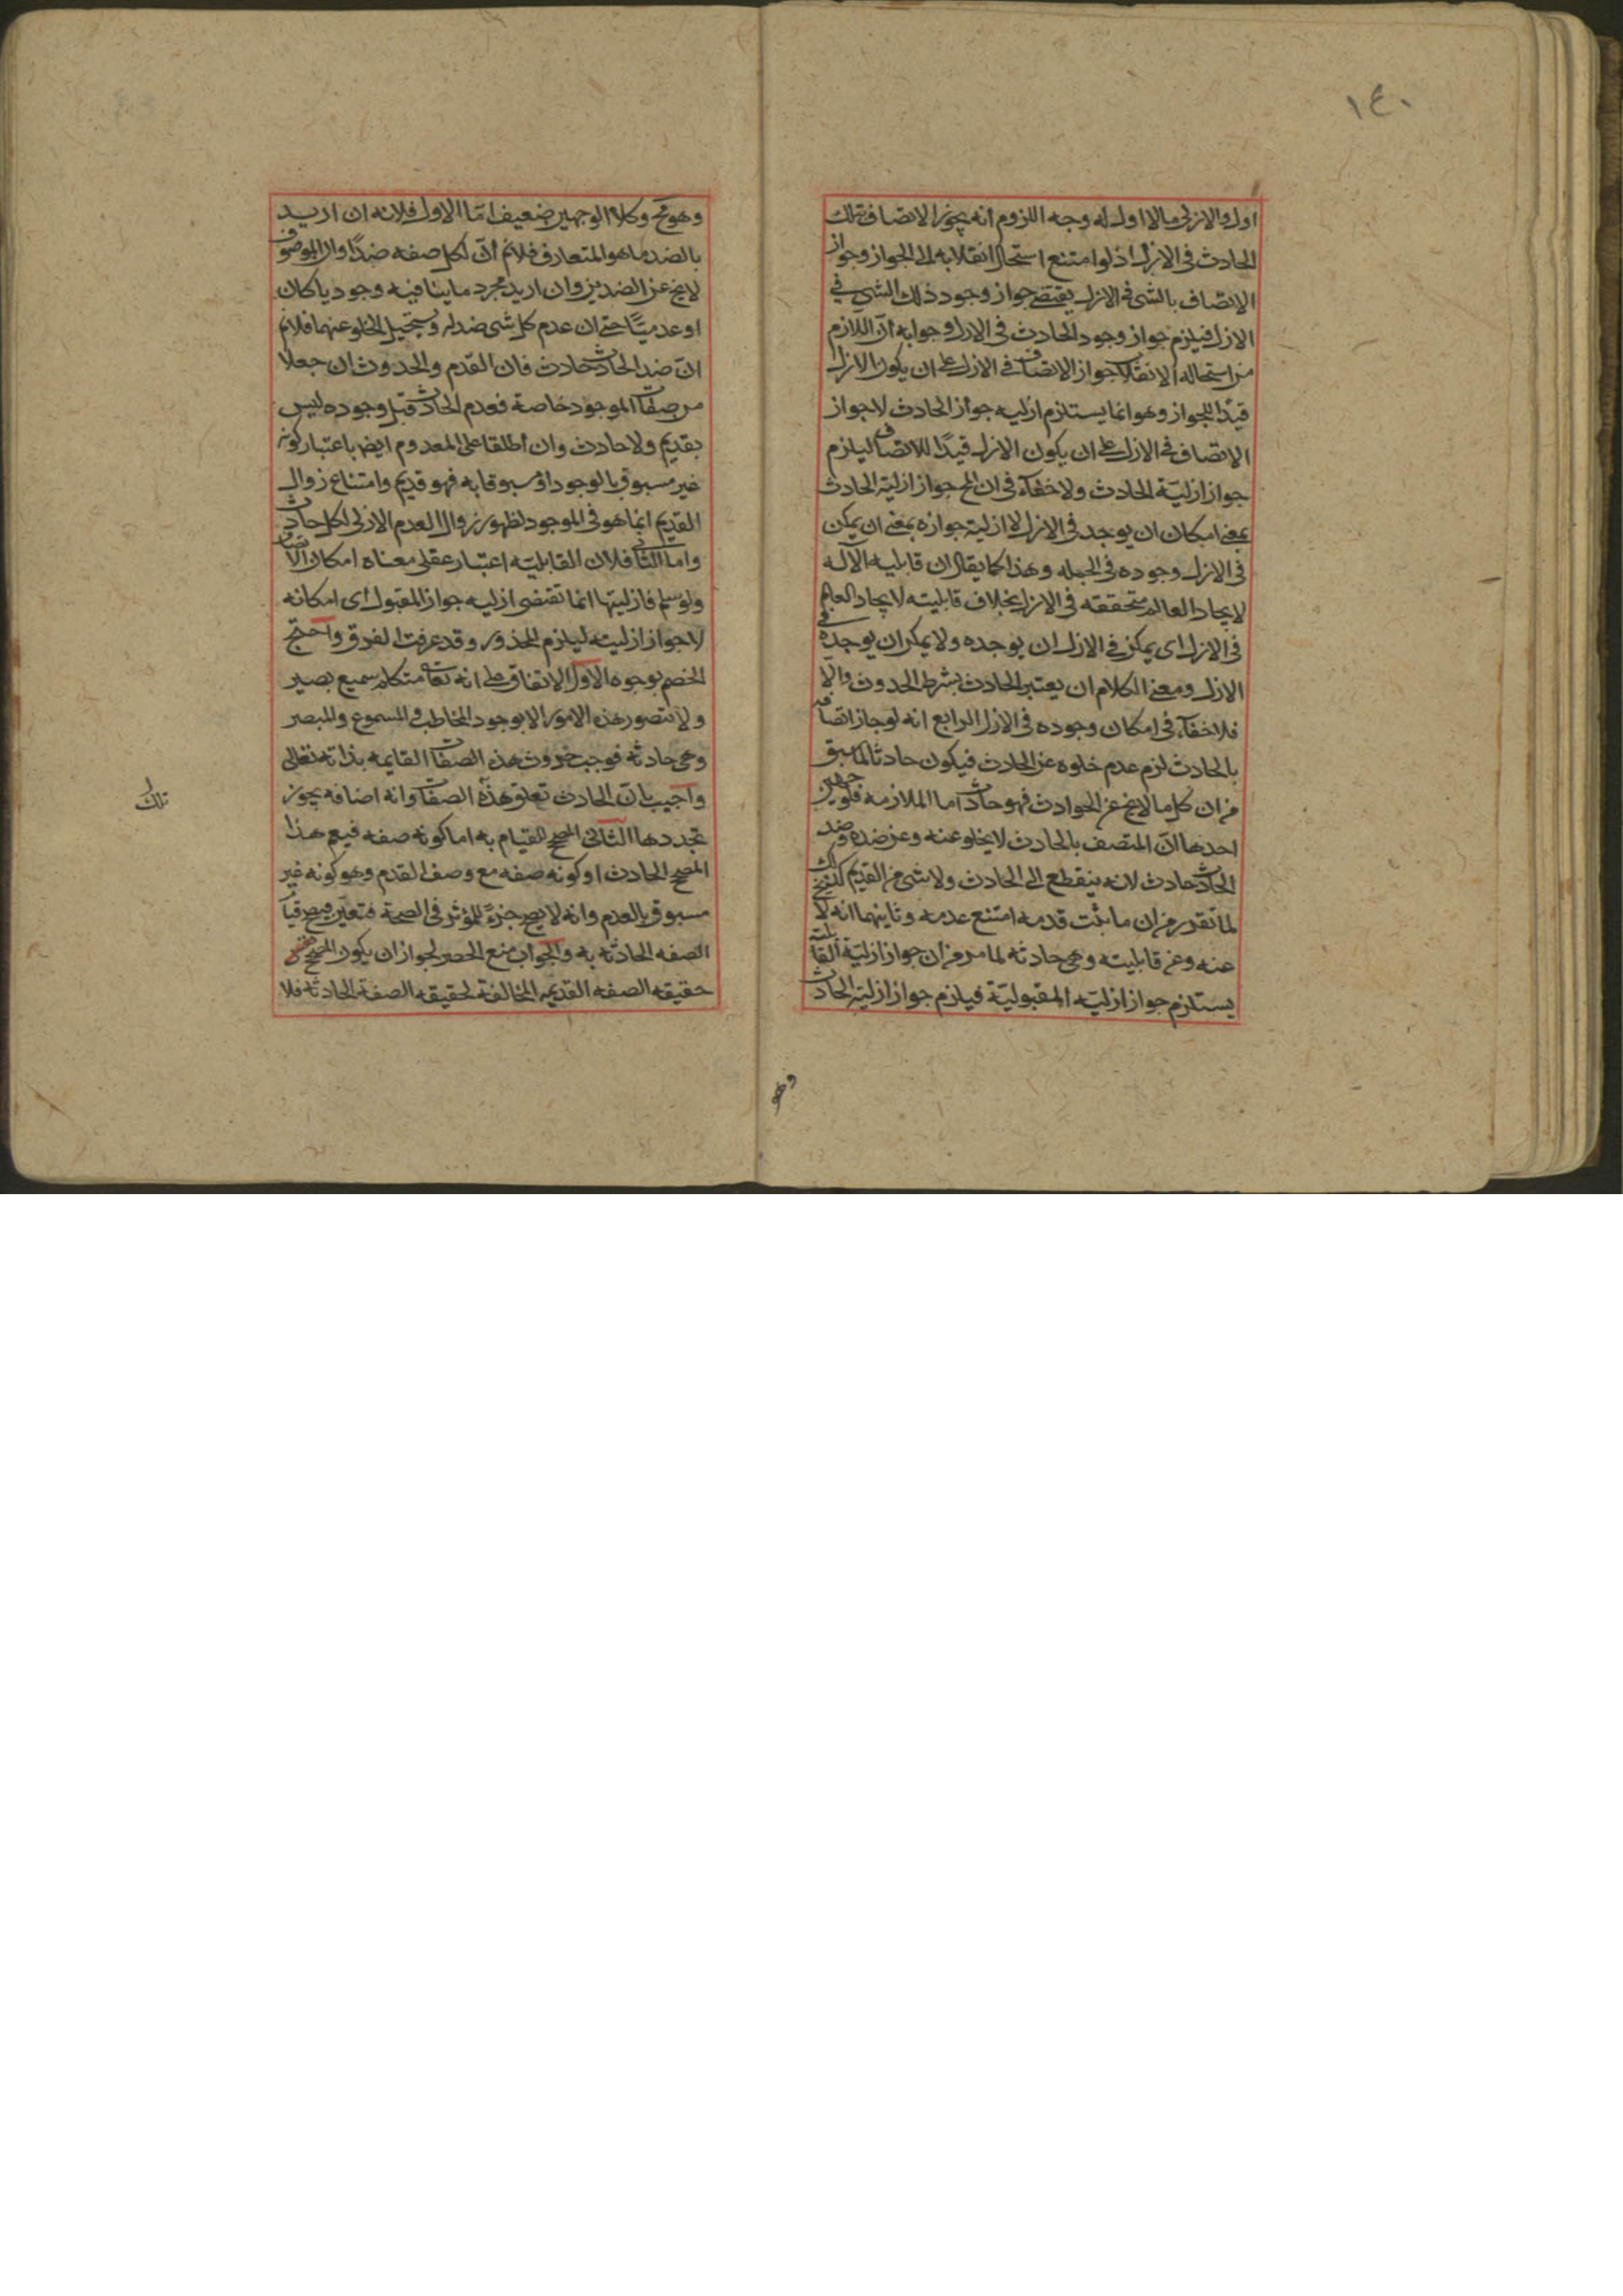 ١٤٠
اول والازلى ما لا اول له وجه اللزوم انه يجوز الاتصاف بتلك
الحادث فى الازل اذ لو امتنع استحال انقلابه الى الجواز وجواز
الاتصاف بالشى فى الازل يقتضى جواز وجود ذلك الشى فى
الازل فيلزم جواز وجود الحادث فى الازل وجوابه ان اللازم
من استحاله الانقلاب جواز الاتصاف فى الازل على ان يكون الازل
قيدًا للجواز وهو انما يستلزم ازليه جواز الحادث لا جواز
الاتصاف فى الازل على ان يكون الازل قيدًا للاتصاف ليلزم
جواز ازليّة الحادث ولا خفاء فى ان المح جواز ازليّة الحادث
بمعنى امكان ان يوجد فى الازل لا ازلية جوازه بمعنى ان يمكن
فى الازل وجوده فى الجمله وهذا كما يقال ان قابليه الآله
لايجاد العالم متحققه فى الازل بخلاف قابليته لايجاد العالم
فى الازل اى يمكن فى الازل ان يوجده ولا يمكن ان يوجده فى
الازل ومعنى الكلام ان يعتبر الحادث بشرط الحدوث والا
فلا خفاء فى امكان وجوده فى الازل الرابع انه لو جاز اتصافه
بالحادث لزم عدم خلوه عن الحادث فيكون حادثا لما سبق
من ان كل ما لا يخ عن الحوادث فهو حادث اما الملازمه فلوجهين
احدها ان المتصف بالحادث لا يخلو عنه وعن ضده وضد
الحادث حادث لانه ينقطع الى الحادث ولا شى من القديم كذلك
لما تقرر من ان ما ثبت قدمه امتنع عدمه وثانيهما انه لا يخ
عنه وعن قابليته وهى حادثه لما مر من ان جواز ازليّة القابليّة
يستلزم جواز ازليّه المقبوليّة فيلزم جواز ازلية الحادث
وهو
وهو مح وكلا الوجهين ضعيف امّا الاول فلانه ان اريد
بالضد ما هو المتعارف فلانم انّ لكل صفه ضدًا وان الموصوف
لا يخ عن الضدين وان اريد مجرد ما ينافيه وجوديا كان
او عدميًّا حتى ان عدم كل شى ضد له ويستحيل الخلو عنهما فلانم
انّ ضد الحادث حادث فان القدم والحدوث ان جعلا
من صفات الموجود خاصة فعدم الحادث قبل وجوده ليس
بقديم ولا حادث وان اطلقا على المعدوم ايضا باعتبار كونه
غير مسبوق بالوجود او مسبوقا به فهو قديم وامتناع زوال
القديم انما هو فى الموجود لظهور زوال العدم الازلى لكل حادث
واما الثانى فلان القابليّه اعتبار عقلى معناه امكان الاتصاف
ولو سلم فازليتها انما تقتضى ازليه جواز المقبول اى امكانه
لا جواز ازليته ليلزم المحذور وقد عرفت الفرق واحتج
الخصم بوجوه الاول الاتفاق على انه تعالى متكلم سميع بصير
ولا تتصور هذه الامور الا بوجود المخاطب والمسموع والمبصر
وهى حادثه فوجب حدوث هذه الصفات القايمه بذاته تعالى
واجيب بان الحادث تعلق هذه الصفات وانه اضافه يجوز
تجددها الثانى المصحح للقيام به اما كونه صفه فيعم هذا
المصحح الحادث او كونه صفه مع وصف القدم وهو كونه غير
مسبوق بالعدم وانه لا يصح جزءً للمؤثر فى الصحة فتعين فيصح قيام
الصفه الحادثه به والجواب منع الحصر لجواز ان يكون المصحح
حقيقه الصفه القديمه المخالفة لحقيقه الصفة الحادثه فلا
تلك